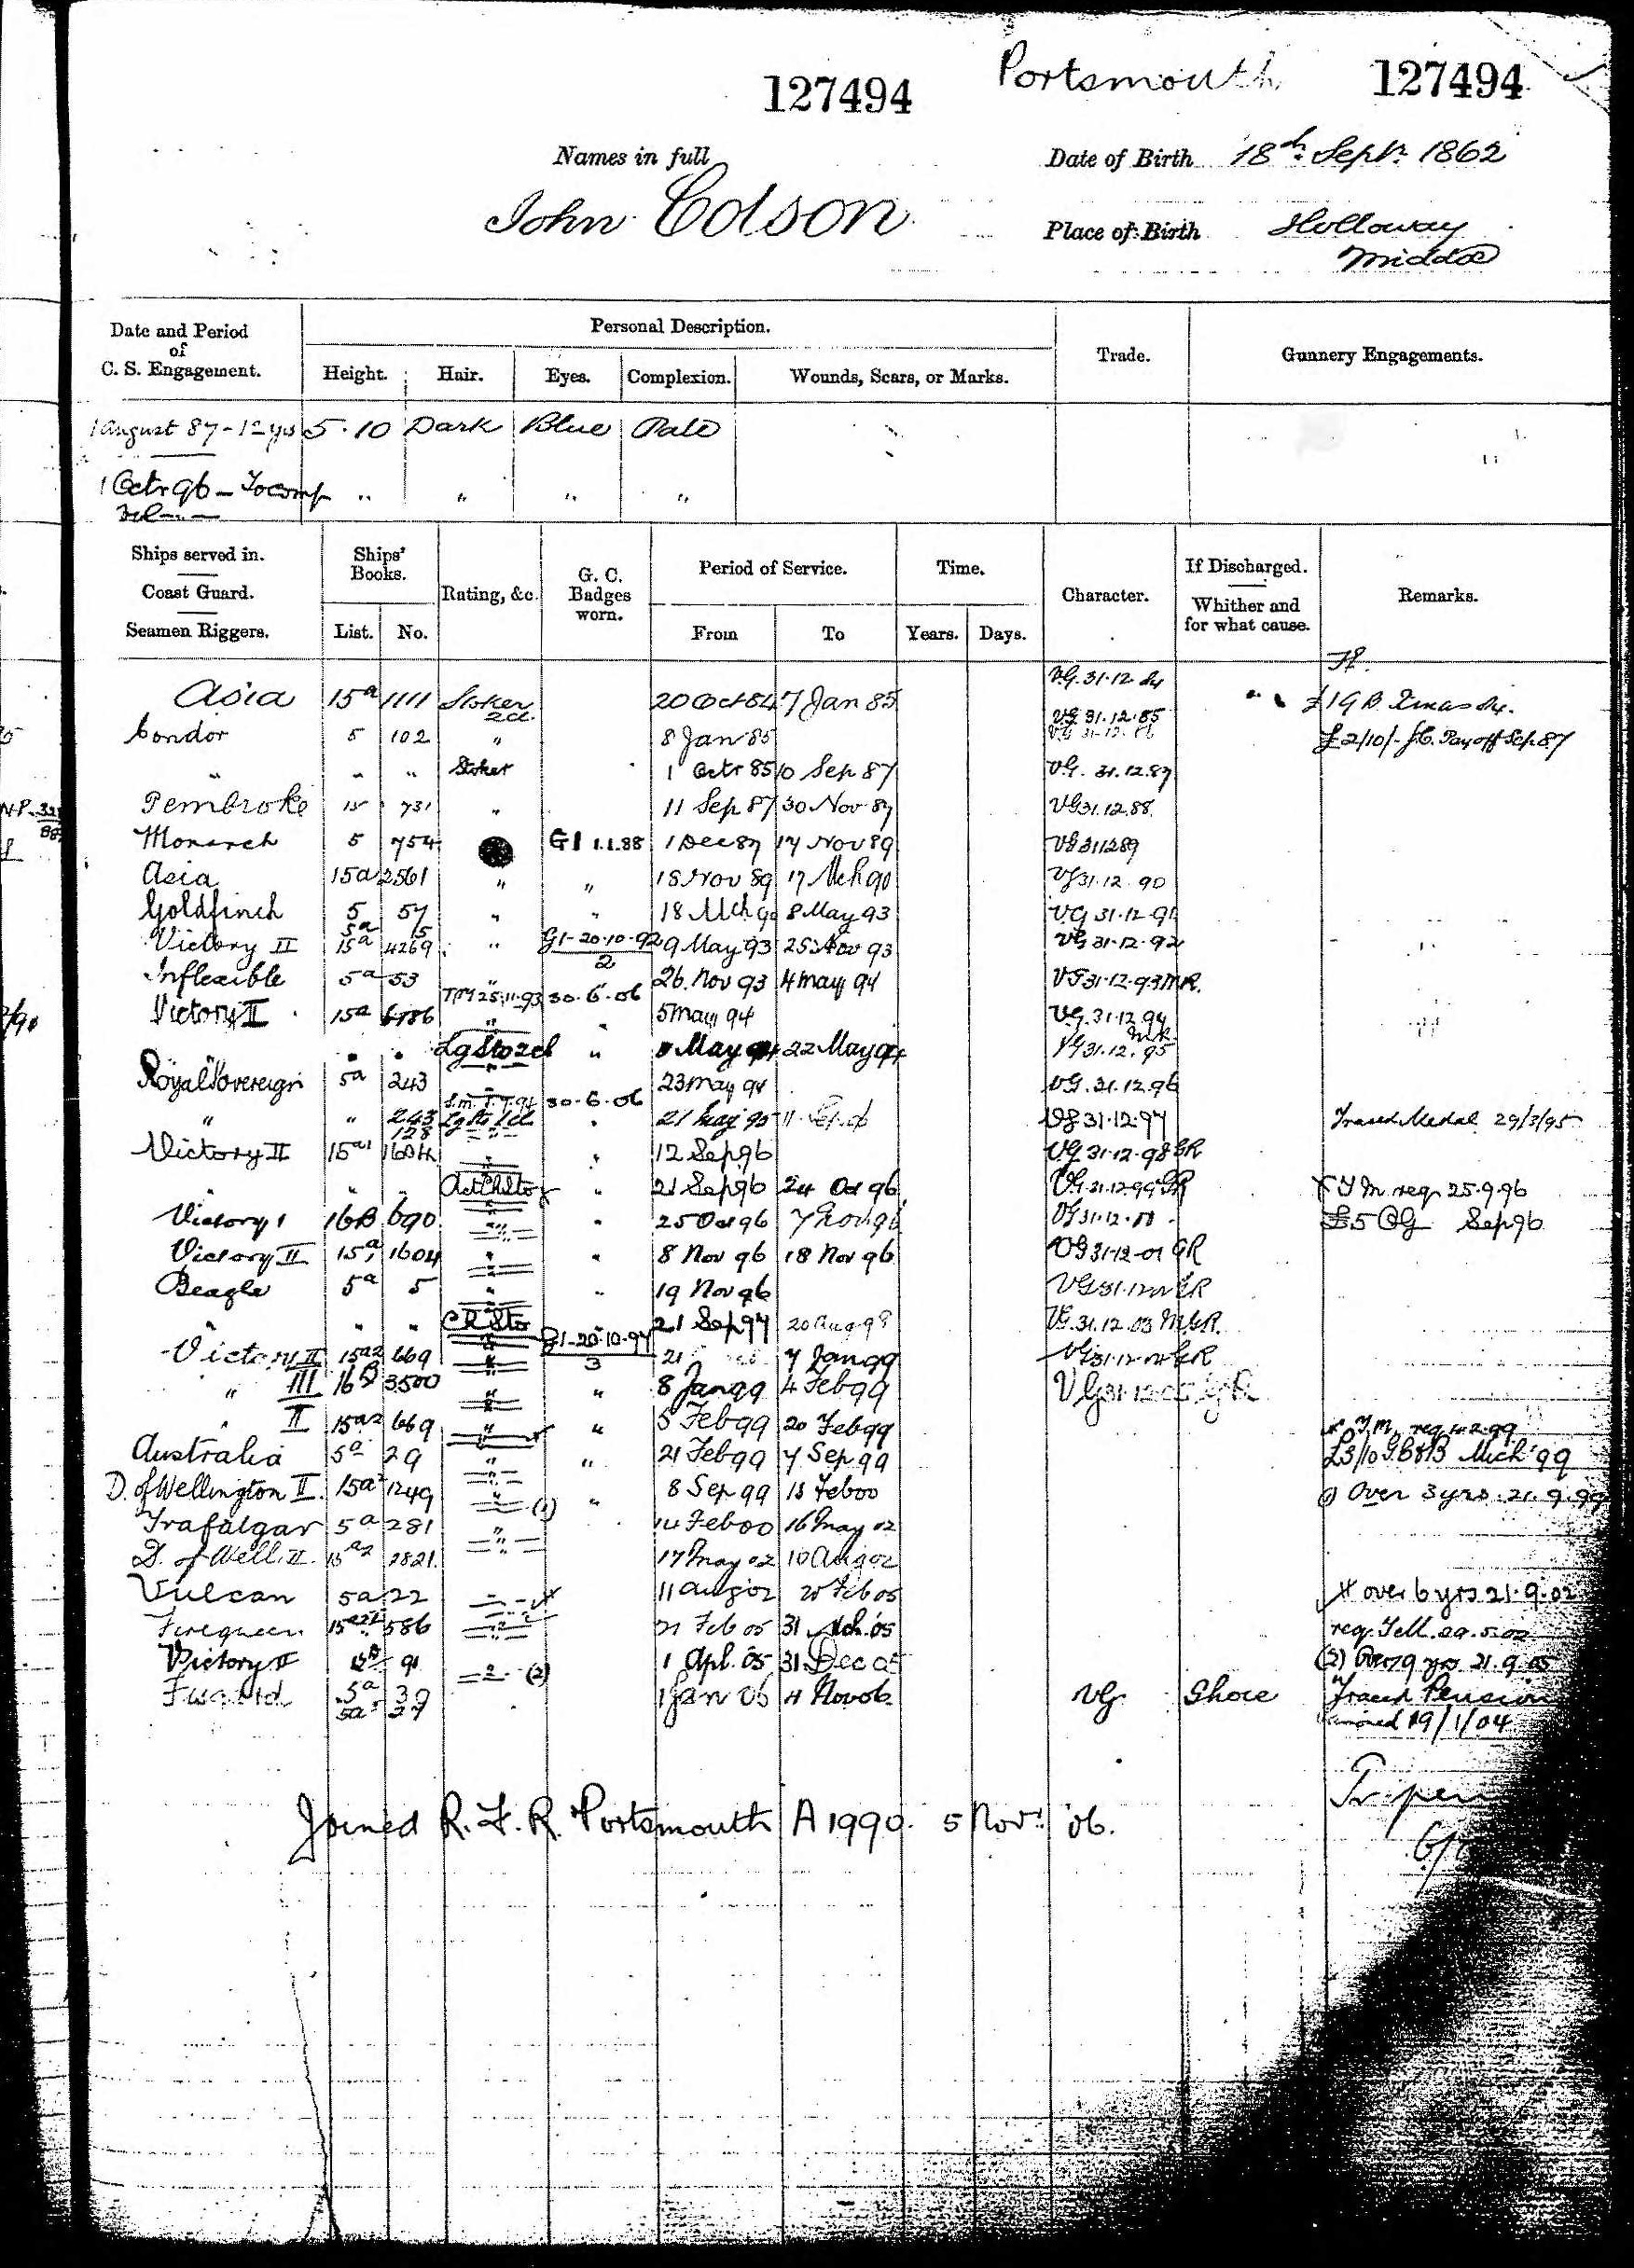 127494 Portsmouth 127494
Names in full Date of Birth 18th Septr 1862
John Colson Place of Birth Holloway
Middx
Date and Period of C. S. Engagement. Personal Description. Trade. Gunnery Engagements.
Height. Hair. Eyes. Complexion. Wounds, Scars, or Marks.
1 August 87 - 12 yrs 5.10 Dark Blue Pale
1 Octr 96 - To comp " " " "
Ships served in. Coast Guard. Seamen Riggers. Ships' Books. Rating, &c. G. C. Badges worn. Period of Service. Time. Character. If Discharged. Whither and for what cause. Remarks.
List. No. From To Years. Days.
V.G. 31.12.84
Asia 15a 1111 Stoker 2cl. 20 Oct 84 7 Jan 85 VG 31.12.85 £1 GB Xmas 84.
Condor 5 102 " 8 Jan 85 VG 31.12.86 £2/10/- Pay off Sep. 87
" " " Stoker 1 Octr 85 10 Sep 87 VG. 31.12.87
Pembroke 15 731 " 11 Sep 87 30 Nov 87 VG 31.12.88
Monarch 5 754 G1 1.1.88 1 Dec 87 17 Nov 89 VG 31 12 89
Asia 15a 2561 " " 18 Nov 89 17 Mch 90 VG 31.12.90
Goldfinch 5 57 " " 18 Mch 90 8 May 93 VG 31.12.91
Victory II 15a 4269 " G1-20.10.92 2 9 May 93 25 Nov 93 VG 31.12.92
Inflexible 5a 53 " 26 Nov 93 4 May 94 VG 31.12.93 MR.
TM 25.11.93 30.6.06
Victory II 15a 6786 " " 5 May 94 VG. 31.12.94
" " Lg Sto 2cl " May 94 22 May 94 VG 31.12.95
Royal Sovereign 5a 243 " 23 May 94 VG. 31.12.96
30.6.06
" " 243 Lg Sto 1cl " 21 VG 31.12.97 Traced Medal 29/3/95
128
Victory II 15a 1604 " " 12 Sep 96 VG 31.12.98 GR
" " " Act Ch Sto " 21 Sep 96 24 Oct 96 VG. 31.12.99 GR T M req 25.9.96
Victory I 16B 690 " " 25 Oct 96 7 Nov 96 VG 31.12.00 £5 CG Sep 96
Victory II 15a 1604 " " 8 Nov 96 18 Nov 96 VG 31-12-01 GR
Beagle 5a 5 " " 19 Nov 96 VG 31.12.02 GR
" " " Ch Sto " 21 Sep 97 20 Aug 98 VG. 31.12.03
Victory II 15a2 669 " G1-20.10.97 3 21 7 Jan 99 VG 31.12.04 GR
" III 16B 3500 " " 8 Jan 99 4 Feb 99 VG 31.12.05 GR
" II 15a2 669 " " 5 Feb 99 20 Feb 99
Australia 5a 29 " " 21 Feb 99 7 Sep 99 £3/10 Mich '99
D. of Wellington II. 15a2 1249 " (1) " 8 Sep 99 13 Feb 00 (1) Over 3 yrs. 21.9.99
Trafalgar 5a 281 " 14 Feb 00 16 May 02
D. of Well. II 15a2 2821. " 17 May 02 10 Aug 02
Vulcan 5a 22 11 Aug 02 20 Feb 05 over 6 yrs 21.9.02
Firequeen 15a2 586 21 Feb 05 31 Mch 05 req. Tell. 29.5.02
Victory II 91 (2) 1 Apl. 05 31 Dec 05 (2) Over 9 yrs 21.9.05
5a 39 1 Jan 06 4 Nov 06 VG Shore Traced Pension
5a 27 19/1/04
Joined R. F. R. Portsmouth A 1990. 5 Novr '06.